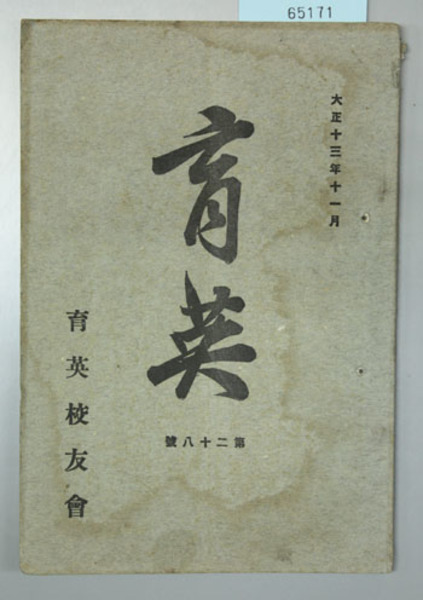 65171
大正十三年十一月
育英
第二十八號
育英校友會